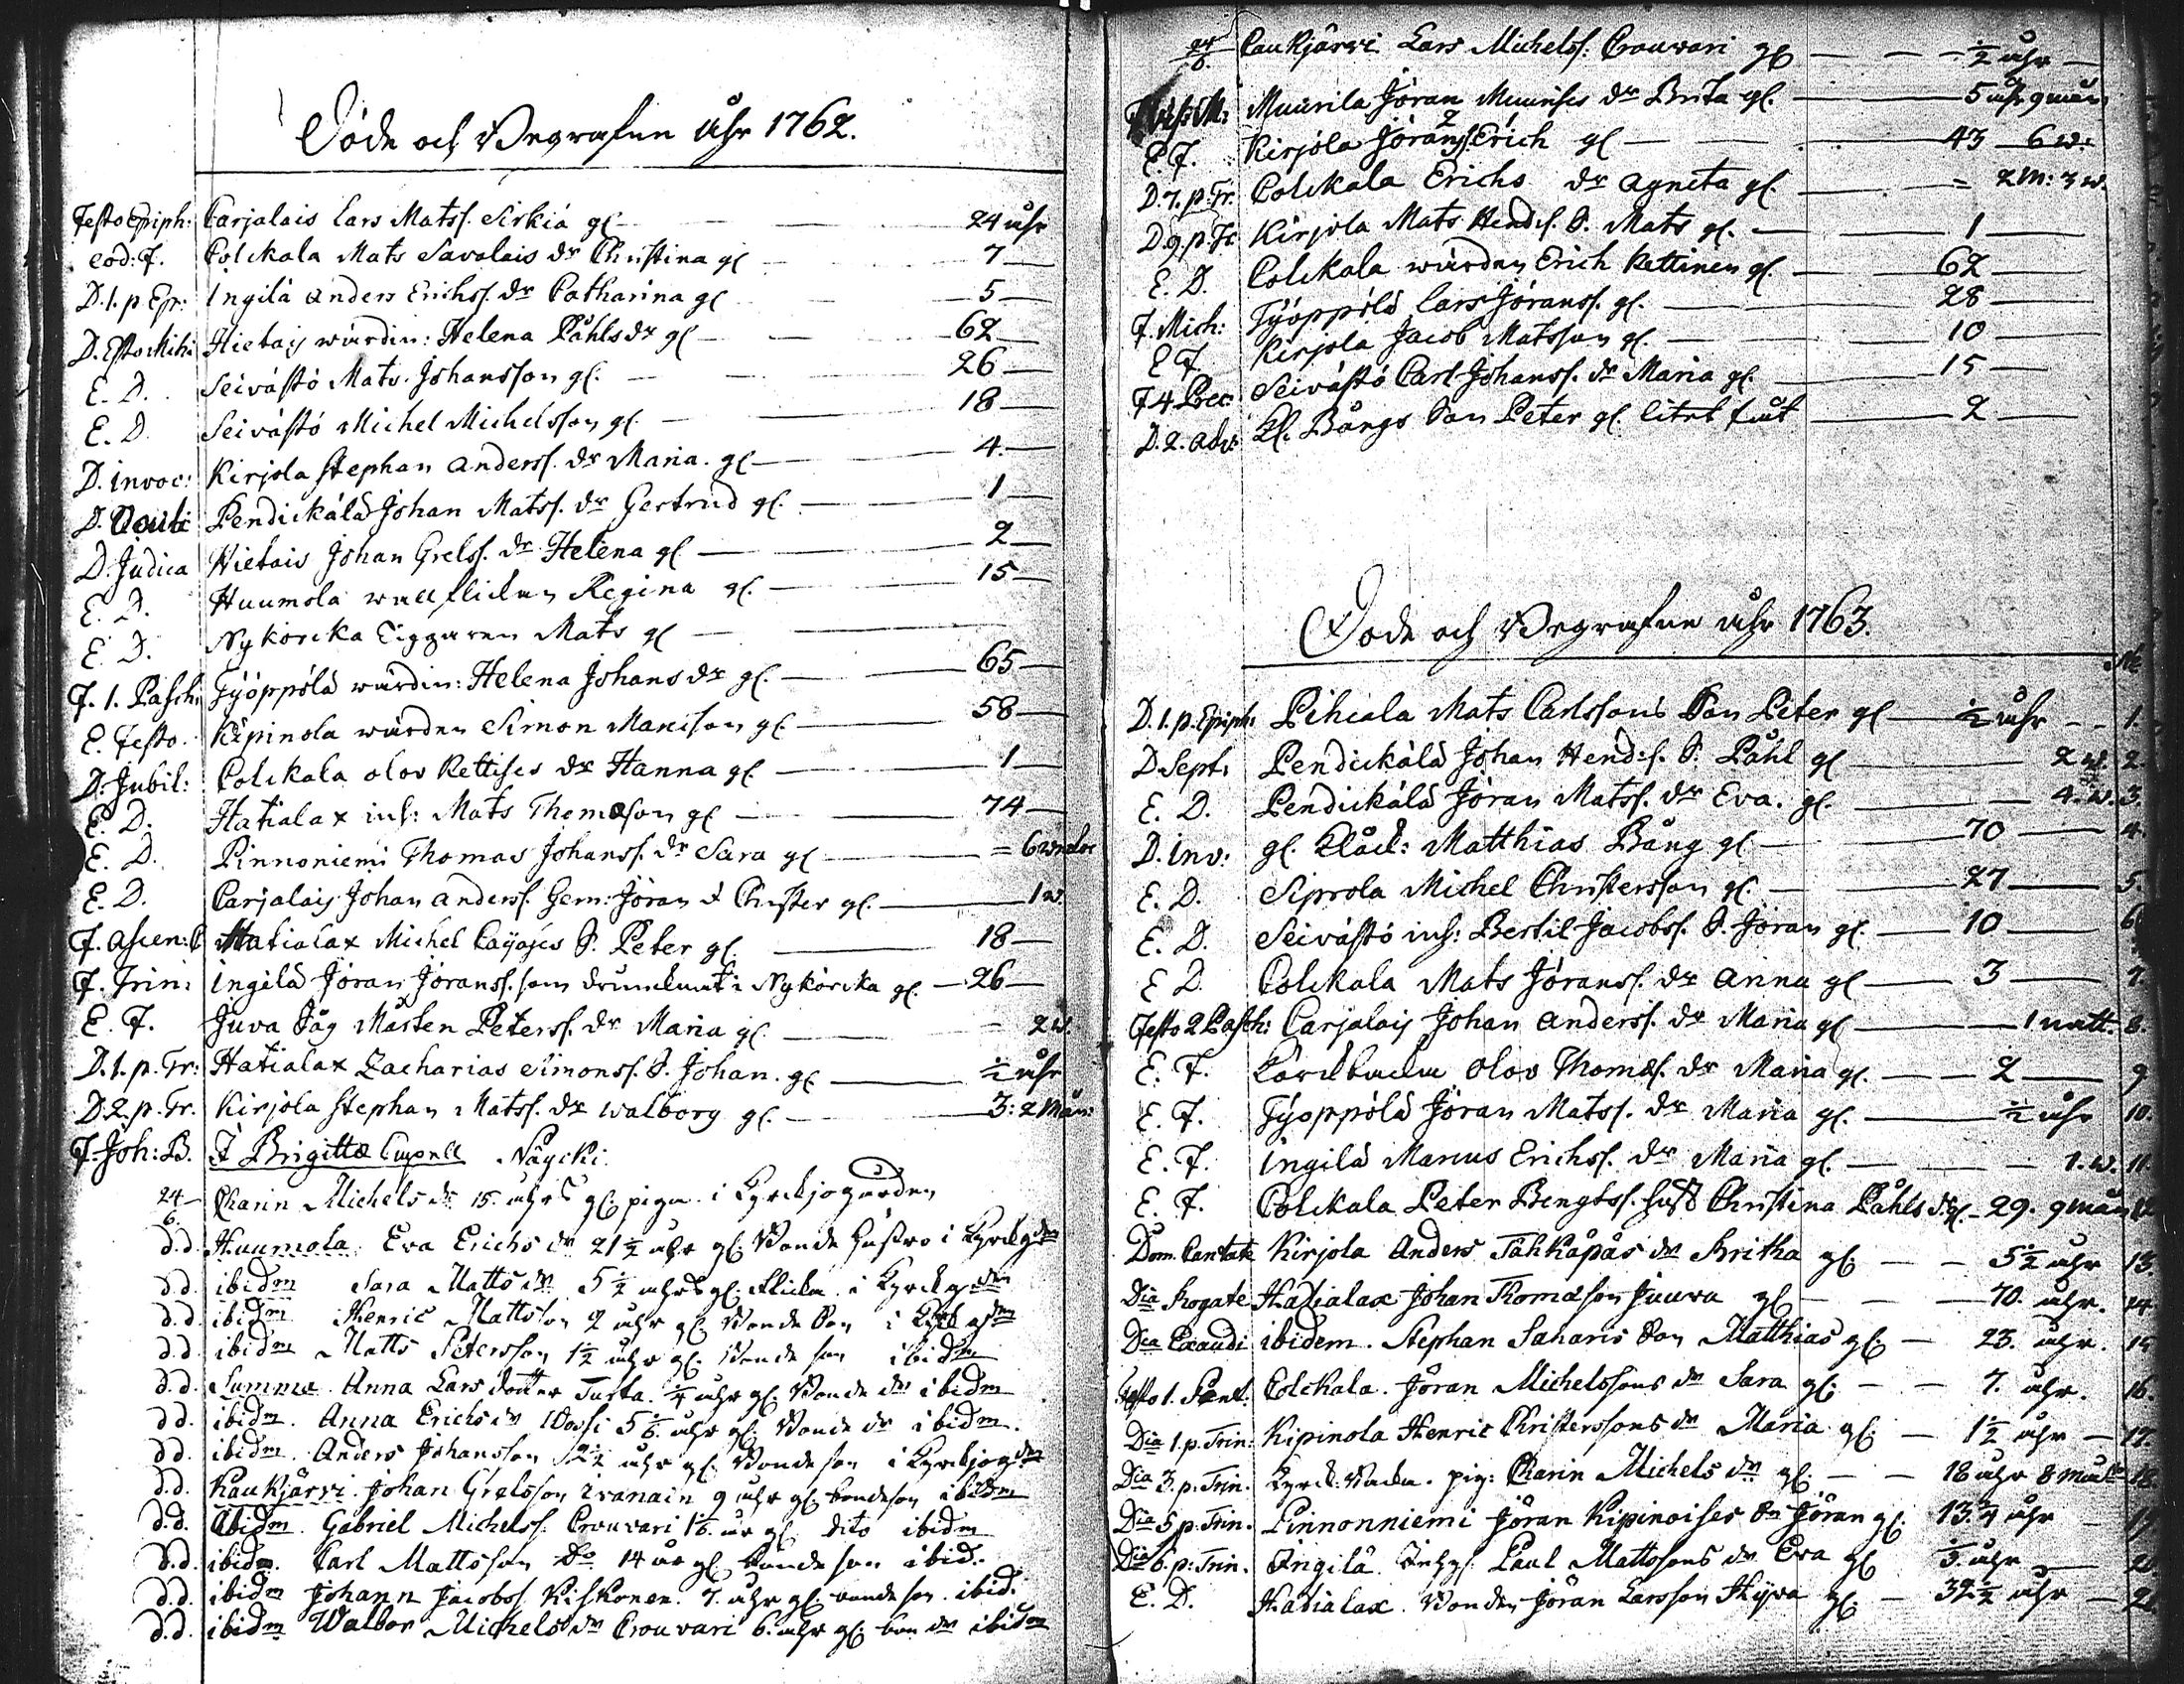 Döde och Begrafne åhr 1762.
Festo Epiph: Carjalais Lars Matss. Sirkiä gl — 24 åhr
eod: f. Colckala Mats Savolais dr Christina gl — 7 —
D. 1. p Epr: Ingilä Anders Erichss. dr Catharina gl — 5 —
D. Esto Mihi Hietais wärdin: Helena Påhls dr gl — 62 —
E. D. Seivästö Mats Johansson gl. — 26 —
E. D. Seivästö Michel Michelsson gl. — 18 —
D. invoc: Kirjola Stephan Anderss. dr Maria. gl — 4. —
D. Oculi Pendickälä Johan Matss. dr Gertrud gl. — 1 —
D. Judica Hietais Johan Grelss. dr Helena gl — 2 —
E. D. Huumola wallflickan Regina gl. — 15 —
E. D. Nykörcka Tiggaren Mats gl —
F. 1. Pasch: Työppölä wärdin: Helena Johans dr gl. — 65 —
E. Festo. Kipinola wärden Simon Manison gl — 58 —
D. Jubil: Colckala Olov Kettises dr Hanna gl. — 1 —
E. D. Hatialax inh: Mats Thomæson gl — 74 —
E. D. Pinnoniemi Thomas Johanss. dr Sara gl — = 6 weckor
E. D. Carjalais Johan Anderss. Gem: Jöran & Christer gl. — 1 w.
F. Ascen: Hatialax Michel Cayajes S. Peter gl. — 18 —
F. Trin: Ingilä Jöran Jöranss. som drunknat i Nykörcka gl. — 26 —
E. F. Juva Såg Mästen Peterss. dr Maria gl. — 2 w.
D. 1. p. Tr: Hatialax Zacharias Simonss. S. Johan. gl — ½ åhr
D. 2. p. Tr. Kirjola Stephan Matss. dr Walborg gl. — 3: 2 Mån:
F. Joh: B. I Brigittæ Capell Näycki.
24/6. Charin Michels dr 15. åhrs gl. piga i Kyrckjogården
d.d. Huumola Eva Erichs dr 21½ åhr gl. Bonde hustro i Kyrckgdn
d.d. ibidm Sara Matts dr 5½ åhrs gl. flicka i Kyrckgrdn
d.d. ibidm Henric Mattson 2 åhr gl. Bonde Son i Kyrkgdn
d.d. ibidm Matts Petersson 1½ åhr gl. Bonde son ibidm
d.d. Summa Anna Lars dotter Turta. ¼ åhr gl. Bonde dr ibidm
d.d. ibidm. Anna Erichs dr 5⅙ åhr gl. Bonde dr ibidm.
d.d. ibidm. Anders Johansson 2½ åhr gl. Bonde son i Kyrckjogdn
d.d. Kaukjärvi. Johan Grelsson Ivanain 9 åhr gl. bondeson ibidm
d.d. ibidm. Gabriel Michelss. Crouvari 1⅙. år gl. dito ibidm
d.d. ibidm. Carl Mattsson Do 14 år gl. bonde son ibid.
d.d. ibidm Johann Jacobss. Kiskonen. 7. åhr gl. bonde son. ibid.
d.d. ibidm Walbor Michels dr Crouvari 6. åhr gl. bon dr ibidm
24/6. Caukjärvi Lars Michelss: Crouvari gl — ½ åhr —
Muurila Jöran Muurises dr Brita gl. — 5 åhr 9 mån
E. F. Kirjola Jöranss. Erich gl — 43 — 6 w.
D. 7. p. Tr. Colckala Erichs dr Agneta gl. — = 2 M: 3 w.
D. 9. p. Tr Kirjola Mats Hendss. S. Mats gl. — 1 —
E. D. Colckala wärden Erich Kettinen gl. — 62 —
F. Mich: Työppölä Lars Jöranss. gl. — 28 —
E F. Kirjola Jacob Matsson gl. — 10 —
F 4 Prec: Seivästö Carl Johanss. dr Maria gl. — 15 —
D. 2. Adv: Kl. Bångs Son Peter gl. — 2 —
Döde och Begrafne åhr 1763.
D. 1. p. Epiph: Pihcala Mats Carlssons Son Peter gl — ½ åhr — 1.
D Sept: Pendickälä Johan Hendss. S. Påhl gl — 2 w. 2.
E. D. Pendickälä Jöran Matss. dr Eva. gl. — 4. w. 3.
D. Inv: gl. Klåck: Matthias Bång gl — 70 — 4.
E. D. Siprola Michel Christersson gl. — 27 — 5.
E. D. Seivästö inh: Bertil Jacobss. S. Jöran gl. — 10 — 6
E D. Colckala Mats Jöranss. dr Anna gl — 3 — 7.
Festo 2 Pasch: Carjalais Johan Anderss. dr Maria gl — 1 natt. 8.
E. F. Kyrckbacka Olov Thomæs. dr Maria gl. — 2 — 9
E. F. Työppölä Jöran Matss. dr Maria gl. — ½ åhr 10.
E. F. Ingilä Marcus Erichss. dr Maria gl. — 1. w. 11.
E. F. Colckala Peter Bengtss. hust Christina Påhls dr gl. — 29. 9 mån 12
Dom. Cantate Kirjola Anders Tähkäpäs dr Britha gl. — 5½ åhr 13.
Dia Rogate Hatialax Johan Thomæson Juuva gl — 70. åhr. 14.
Dca Exaudi ibidem. Stephan Saharis Son Matthias gl. — 23. åhr. 15
Festo 1. Pent: Colckala. Jöran Michelssons dr Sara gl. — 7. åhr. 16.
Dia 1. p. Trin: Kipinola Henric Christerssons dr Maria gl. — 1½ åhr — 17.
Dia 3. p. Trin. Kyrck: Backa. pig: Charin Michels dr gl. — 18 åhr 8 mån 18.
Dia 5 p. Trin. Pinnonniemi Jöran Kipinoises Sn Jöran gl. 13¾ åhr — 19
Dia 6. p: Trin. Ingilä. Paul Mattssons dr Eva gl — åhr — 20
E. D. Hatialax. Bonden Jöran Larsson Hyva gl. — 32½ åhr — 21